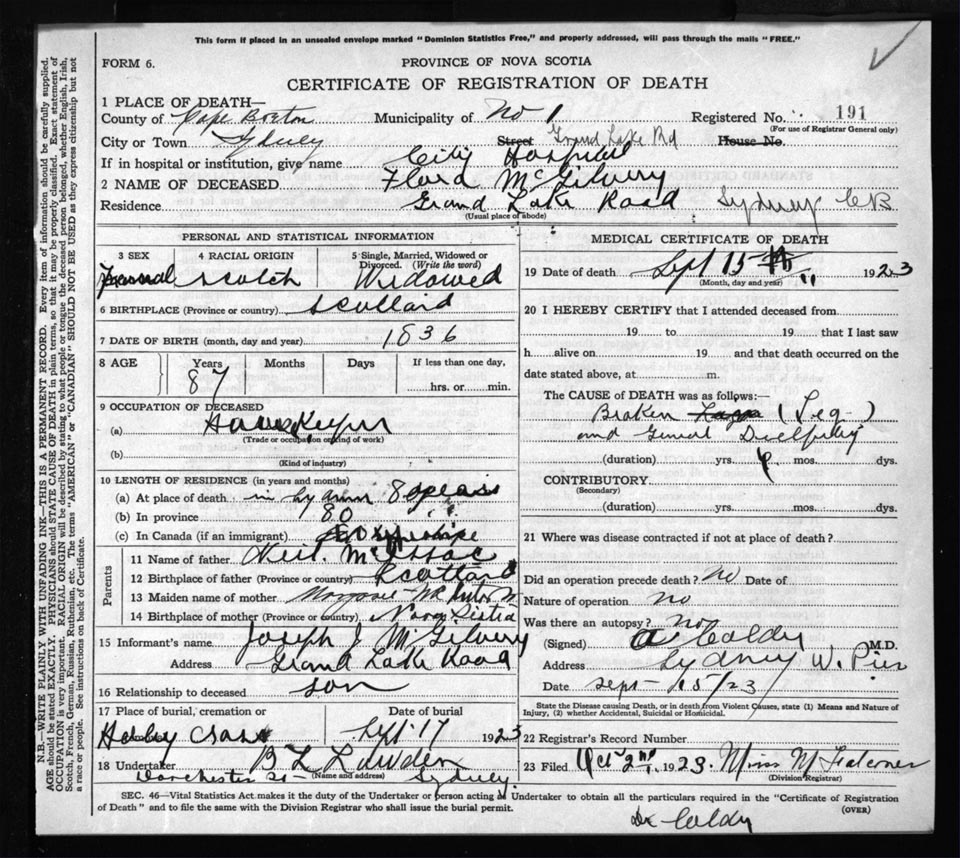 This form if placed in an unsealed envelope marked "Dominion Statistics Free," and properly addressed, will pass through the mails "FREE."
FORM 6.
PROVINCE OF NOVA SCOTIA
CERTIFICATE OF REGISTRATION OF DEATH
1 PLACE OF DEATH—
County of Cape Breton Municipality of No 1 Registered No. 191
(For use of Registrar General only)
City or Town Sydney Street Grand Lake Rd House No.
If in hospital or institution, give name City Hospital
2 NAME OF DECEASED McGilvery
Residence Grand Lake Road Sydney CB
(Usual place of abode)
PERSONAL AND STATISTICAL INFORMATION
3 SEX
4 RACIAL ORIGIN Scotch
5 Single, Married, Widowed or Divorced. (Write the word) Widowed
6 BIRTHPLACE (Province or country) Scotland
7 DATE OF BIRTH (month, day and year) 1836
8 AGE Years 87 Months Days If less than one day,
hrs. or min.
9 OCCUPATION OF DECEASED
(a)
(Trade or occupation or kind of work)
(b)
(Kind of industry)
10 LENGTH OF RESIDENCE (in years and months)
(a) At place of death in 80 years
(b) In province 80
(c) In Canada (if an immigrant)
Parents
11 Name of father Neil
12 Birthplace of father (Province or country) Scotland
13 Maiden name of mother
14 Birthplace of mother (Province or country) Nova Scotia
15 Informant's name Joseph J McGilvery
Address Grand Lake Road
16 Relationship to deceased son
17 Place of burial, cremation or Date of burial
Sept. 17 1923
18 Undertaker B L
(Name and address)
Dorchester St Sydney
MEDICAL CERTIFICATE OF DEATH
19 Date of death Sept 15 1923
(Month, day and year)
20 I HEREBY CERTIFY that I attended deceased from
19 to 19 that I last saw
h alive on 19 and that death occurred on the
date stated above, at m.
The CAUSE OF DEATH was as follows:—
Broken (Leg)
and
(duration) yrs. mos. dys.
CONTRIBUTORY
(Secondary)
(duration) yrs. mos. dys.
21 Where was disease contracted if not at place of death?
Did an operation precede death? no Date of
Nature of operation no
Was there an autopsy? no
(Signed) M.D.
Address Sydney W. Pier
Date Sept- 15/23
State the Disease causing Death, or in death from Violent Causes, state (1) Means and Nature of
Injury, (2) whether Accidental, Suicidal or Homicidal.
22 Registrar's Record Number
23 Filed Oct 2nd 1923. Miss M Falconer
(Division Registrar)
SEC. 46—Vital Statistics Act makes it the duty of the Undertaker or person acting as Undertaker to obtain all the particulars required in the "Certificate of Registration
of Death" and to file the same with the Division Registrar who shall issue the burial permit.
(OVER)
Dr
N.B.—WRITE PLAINLY WITH UNFADING INK—THIS IS A PERMANENT RECORD. Every item of information should be carefully supplied.
AGE should be stated EXACTLY. PHYSICIANS should STATE CAUSE OF DEATH in plain terms, so that it may be properly classified. Exact statement of
OCCUPATION is very important. RACIAL ORIGIN will be described by stating to what people or tongue the deceased person belonged, whether English, Irish,
Scotch, French, German, Russian, Ruthenian, etc. The terms "AMERICAN" or "CANADIAN" SHOULD NOT BE USED as they express citizenship but not
a race or people. See instructions on back of Certificate.